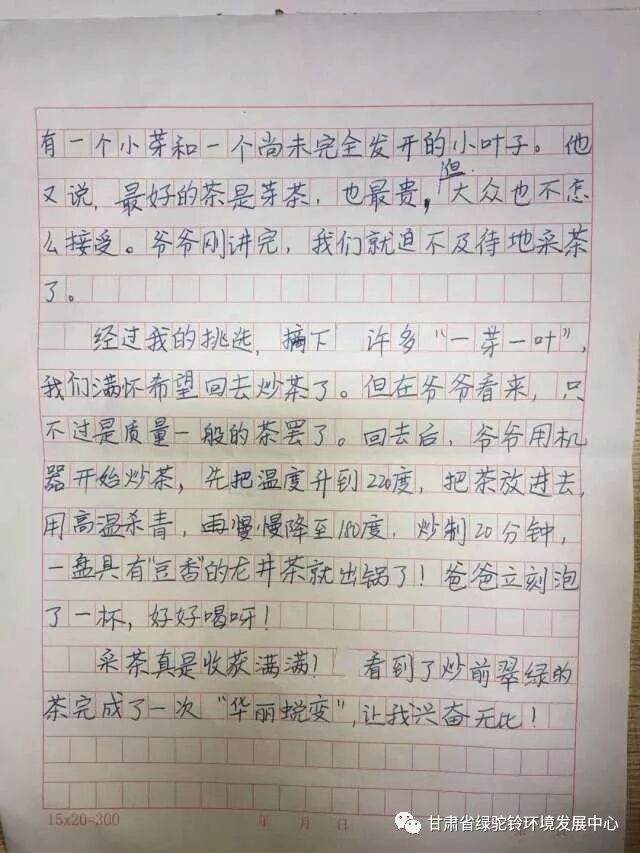 有一个小芽和一个尚未完全发开的小叶子。他
又说，最好的茶是芽茶，也最贵，但大众也不怎
么接受。爷爷刚讲完，我们就迫不及待地采茶
了。
经过我的挑选，摘下 许多“一芽一叶”，
我们满怀希望回去炒茶了。但在爷爷看来，只
不过是质量一般的茶罢了。回去后，爷爷用机
器开始炒茶，先把温度升到220度，把茶放进去，
用高温杀青，再慢慢降至180度，炒制20分钟，
一盘具有“豆香”的龙井茶就出锅了！爸爸立刻泡
了一杯，好好喝呀！
采茶真是收获满满！ 看到了炒前翠绿的
茶完成了一次“华丽蜕变”，让我兴奋无比！
15x20=300 年 月 日
甘肃省绿驼铃环境发展中心